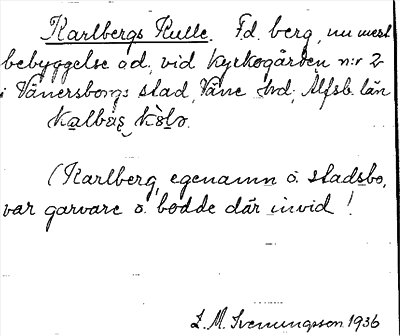 Karlbergs Kulle. Fd. berg, nu mest
bebyggelse o.d., vid Kyrkogården n:r 2
i Vänersborgs stad, Väne hrd, Älfsb. län
(Karlberg, egenamn o. stadsbo,
var garvare o. bodde där invid!
L. M. Svenungsson 1936